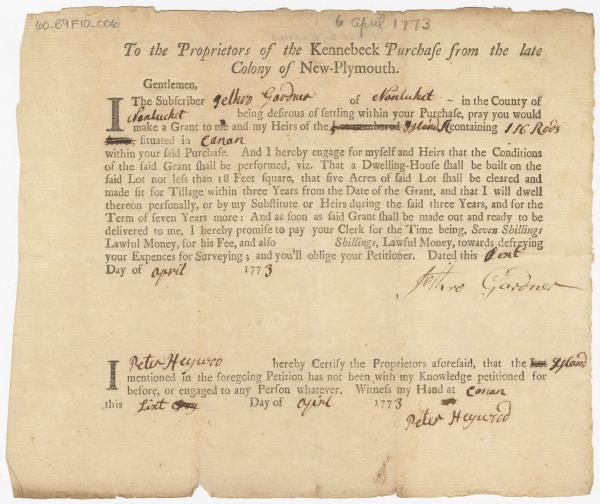 60-B9F10-006
6 April 1773
To the Proprietors of the Kennebeck Purchase from the late
Colony of New-Plymouth.
Gentlemen,
I The Subscriber Jethro Gardner of Nantucket - in the County of
Nantucket being desirous of settling within your Purchase, pray you would
make a Grant to me and my Heirs of the Lot numbered Island containing 116 Rods
situated in Canan
within your said Purchase. And I hereby engage for myself and Heirs that the Conditions
of the said Grant shall be performed, viz. That a Dwelling-House shall be built on the
said Lot not less than 18 Feet square, that five Acres of said Lot shall be cleared and
made fit for Tillage within three Years from the Date of the Grant, and that I will dwell
thereon personally, or by my Substitute or Heirs during the said three Years, and for the
Term of seven Years more: And as soon as said Grant shall be made out and ready to be
delivered to me, I hereby promise to pay your Clerk for the Time being, Seven Shillings
Lawful Money, for his Fee, and also Shillings, Lawful Money, towards defreying
your Expences for Surveying; and you'll oblige your Petitioner. Dated this
Day of april 1773
Jethro Gardner
I Peter Heywod hereby Certify the Proprietors aforesaid, that the Lot Island
mentioned in the foregoing Petition has not been with my Knowledge petitioned for
before, or engaged to any Person whatever. Witness my Hand at Canan
this Sixt Day of april 1773
Peter Heywod